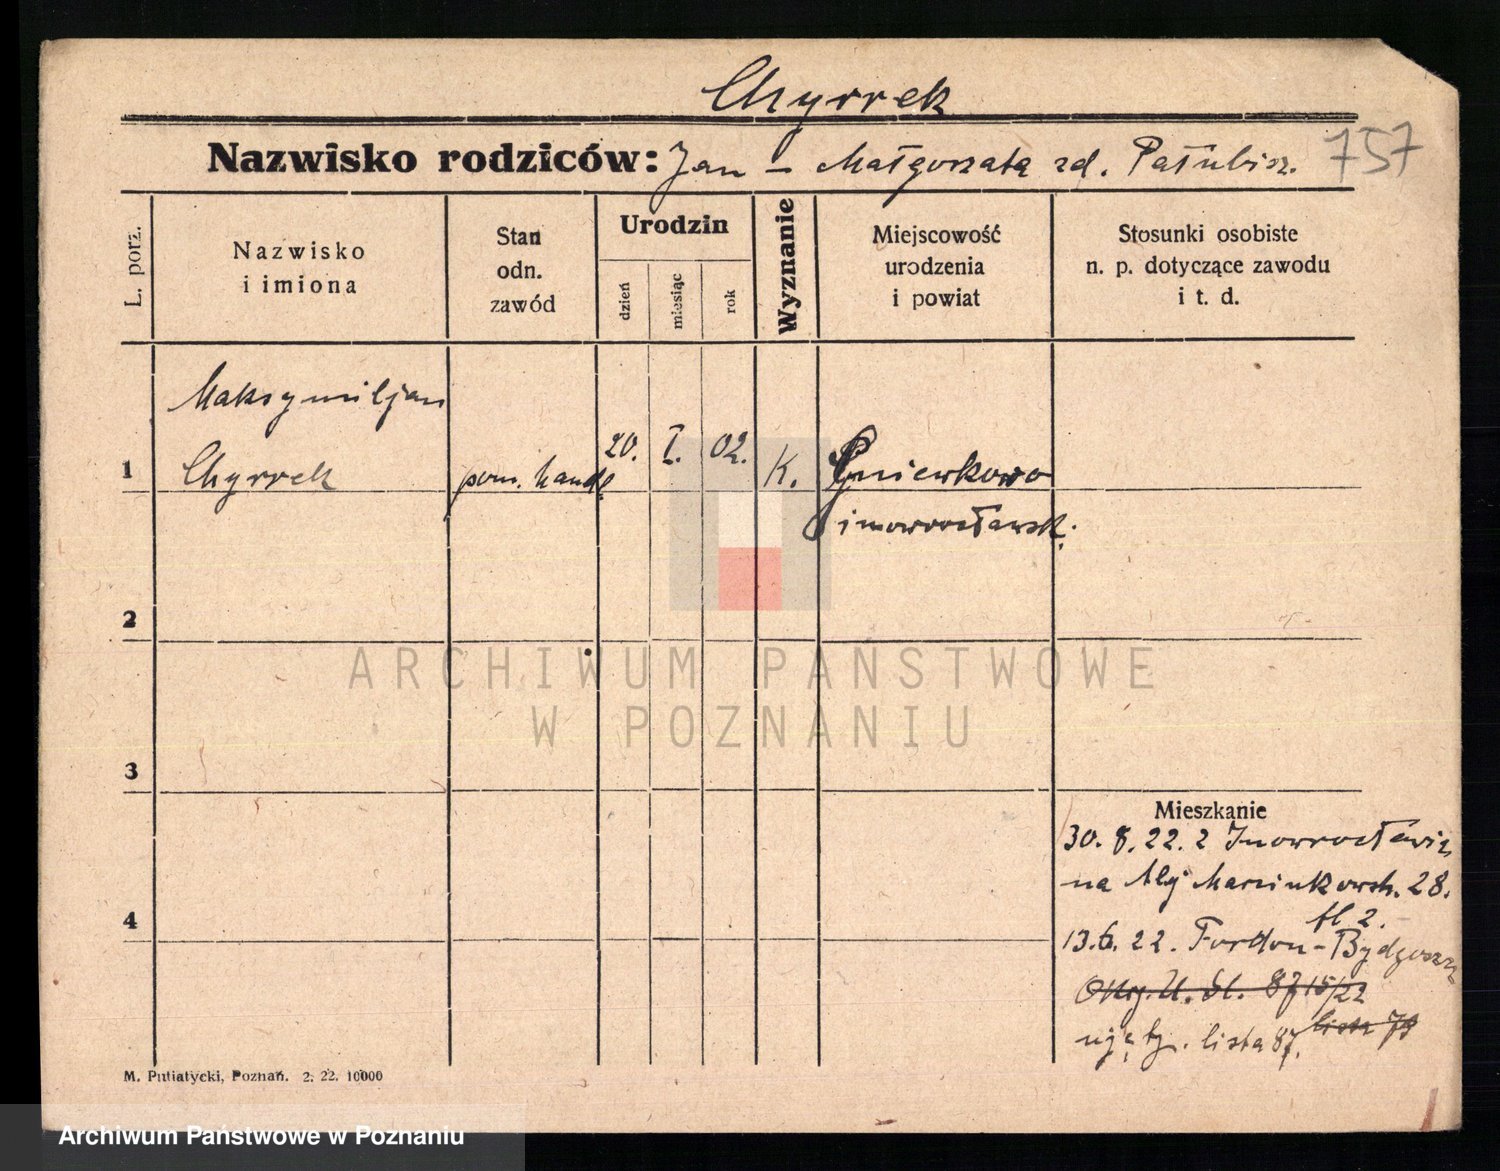 Chyrrek
Nazwisko rodziców: Jan – Małgorzata zd. Pałubisz. 757
L. porz.
Nazwisko
i imiona
Stan
odn.
zawód
Urodzin
dzień
miesiąc
rok
Wyznanie
Miejscowość
urodzenia
i powiat
Stosunki osobiste
n. p. dotyczące zawodu
i t. d.
Maksymiljan
1 Chyrrek pom. handl 20. I. 02. K. Gniewkowo
inowrocławsk.
2
ARCHIWUM PAŃSTWOWE
W POZNANIU
3
Mieszkanie
30. 8. 22. z Inowrocławia
na Marcinkowsk. 28.
4
13. 6. 22. Fordon-Bydgoszcz
87 15/22
lista 79
ujęty. lista 87.
M. Putiatycki, Poznań. 2. 22. 10000
Archiwum Państwowe w Poznaniu